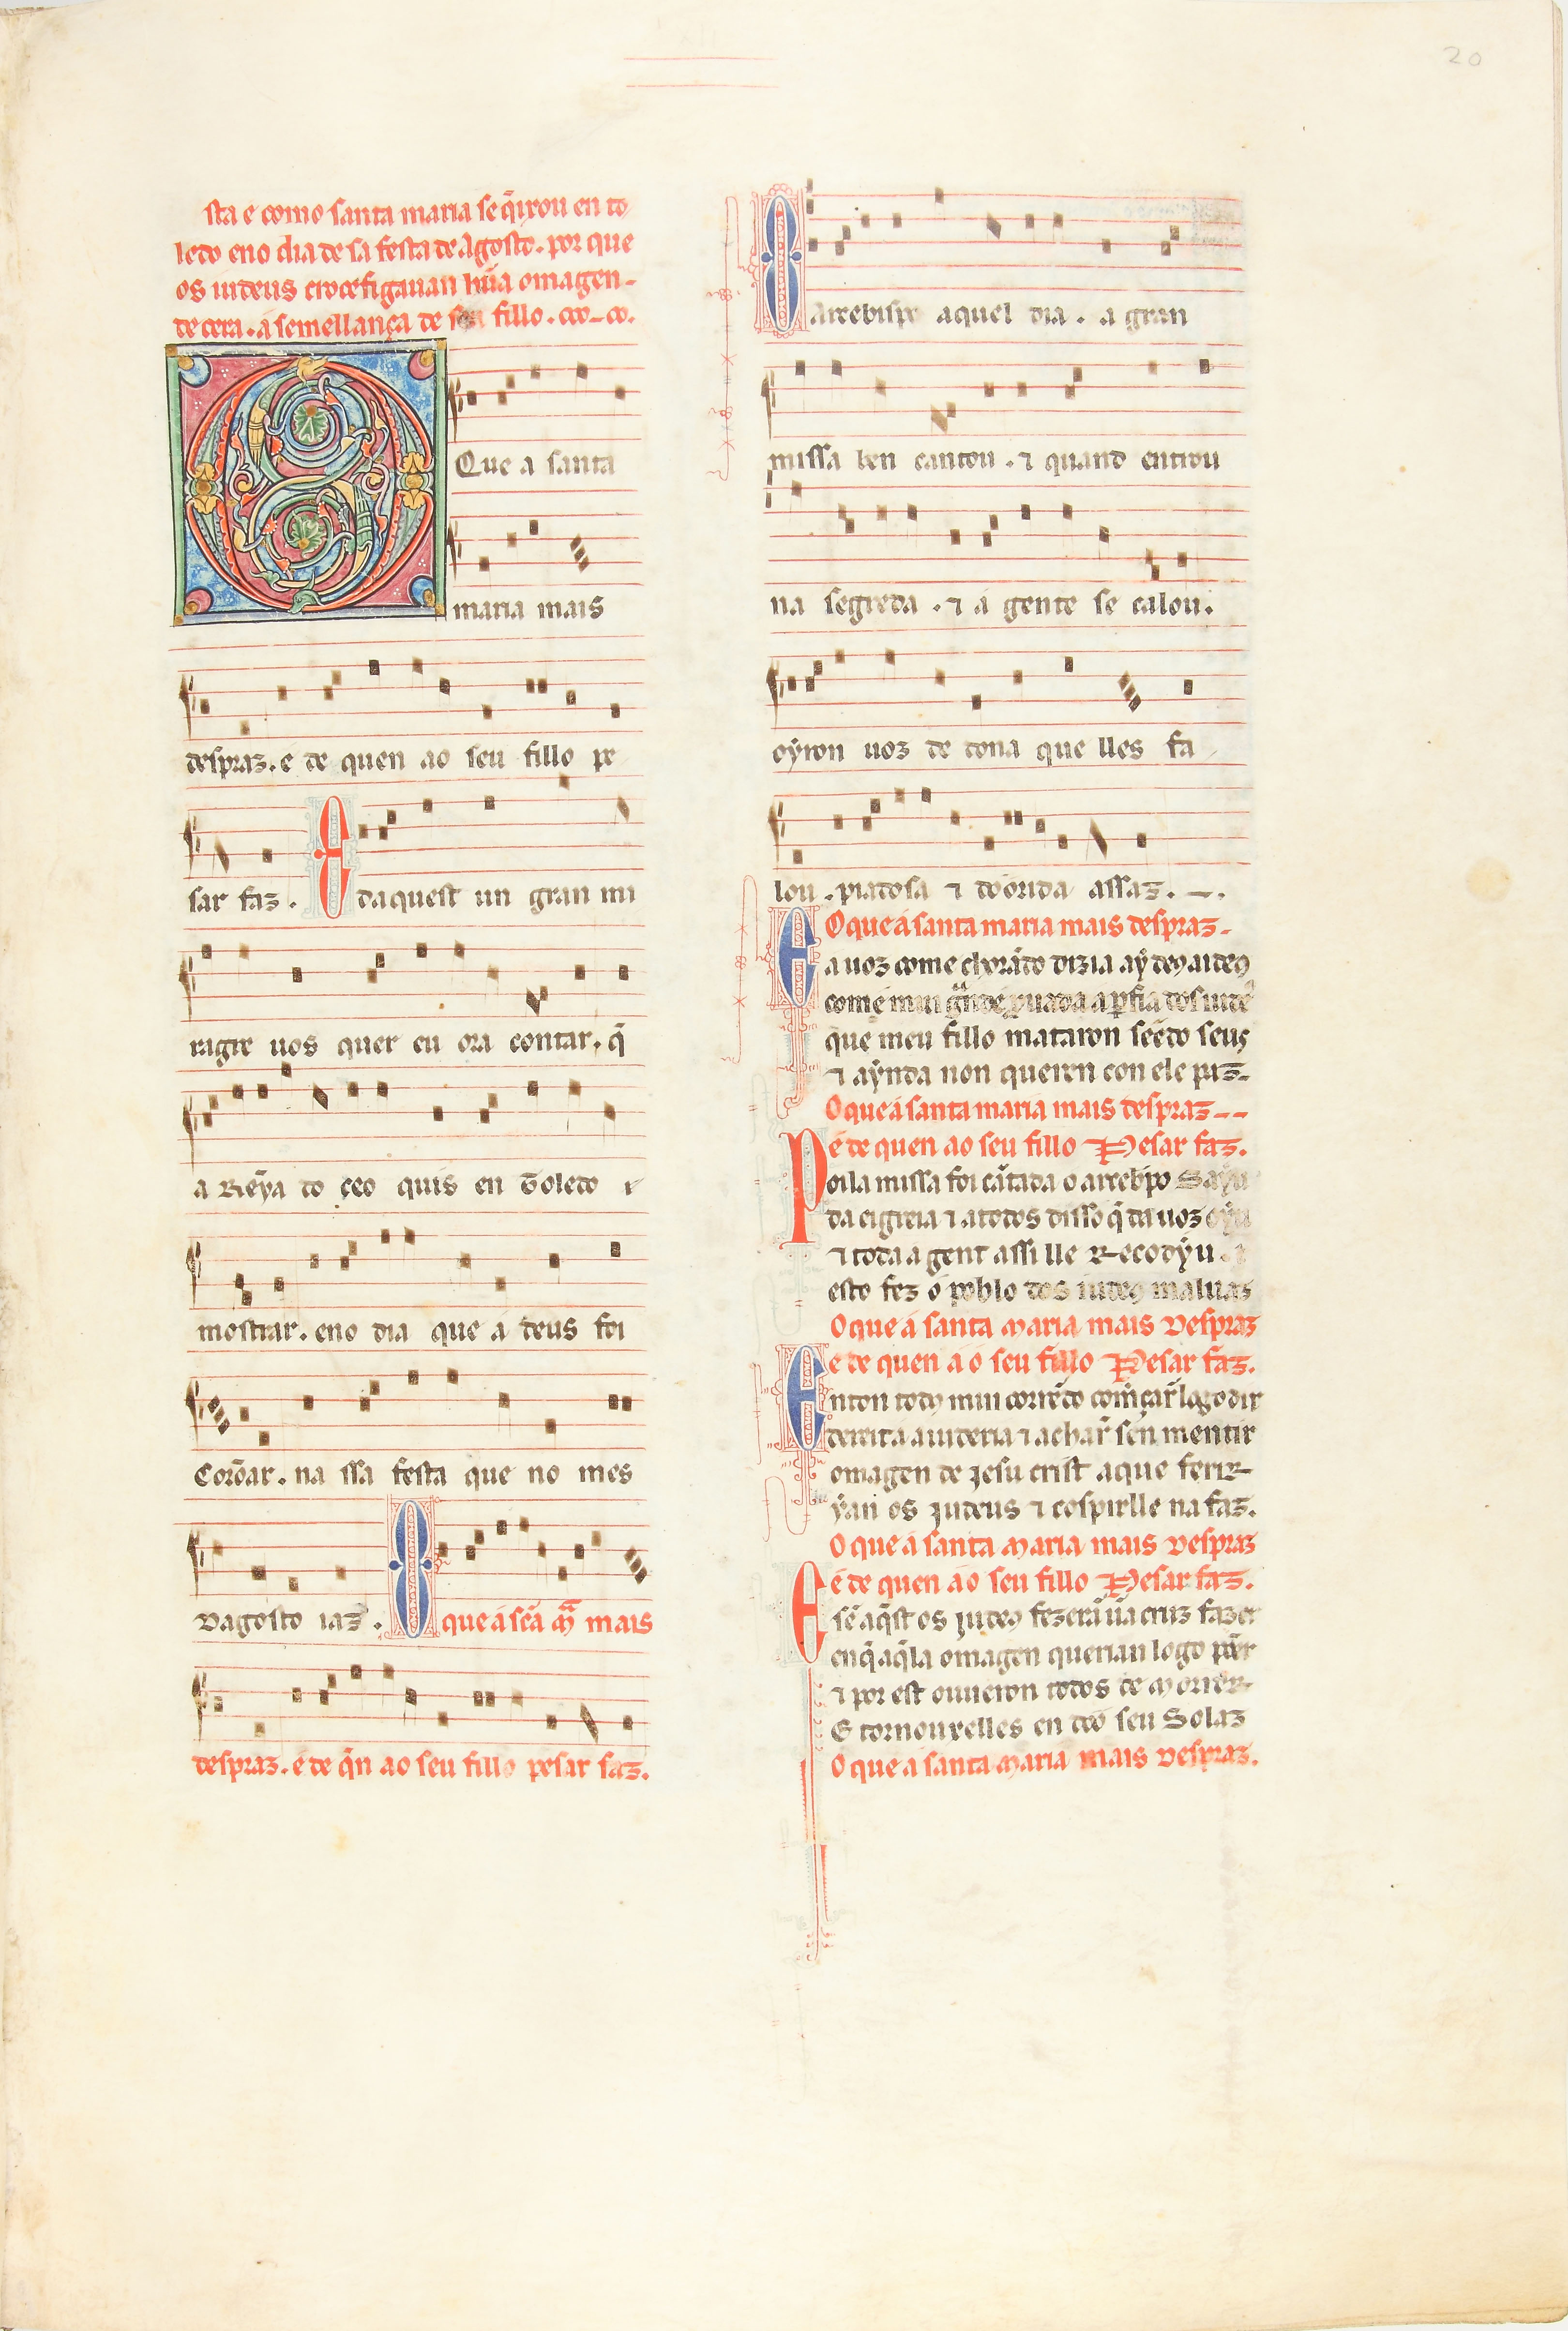 20
sta e como santa maria se q̄ixou en to
ledo eno dia de sa festa de Agosto. por que
os iudeus crucefigauan hũa omagen
de cera. á semellança de seu fillo.
O Que a santa
maria mais
despraz. é de quen ao seu fillo pe
sar faz. E daquest un gran mi
ragre uos quer eu ora contar. q̄
a Reỹa do çeo quis en Toledo
mostrar. eno dia que a deus foi
Corõar. na ssa festa que no mes
Dagosto iaz. O que á sc̄a Mª mais
despraz. é de q̄n ao seu fillo pesar faz.
O arcebispo aquel dia. a gran
missa ben cantou. ⁊ quand entrou
na segreda. ⁊ á gente se calou.
oẏron uoz de dona que lles fa
lou. piadosa ⁊ doorida assaz.
O que á santa maria mais despraz.
E a uoz come chorãdo dizia aẏ de
come mui
que meu fillo mataron seẽdo seus
⁊ aẏnda non queren con ele paz.
O que á santa maria mais despraz
é de quen ao seu fillo Pesar faz.
Poila missa foi cãtada o arcebpo Saẏu
da eigreia ⁊ a todos disso q̄ da uoz oẏu
⁊ toda a gent assi lle Recodẏu.
esto fez ó poblo dos iudeus maluaz
O que á santa Maria mais Despraz
é de quen a ó seu fillo Pesar faz.
Enton todos mui corrẽdo començarã logo dir
dereit á a iuderia ⁊ achar̃ sen mentir
omagen de Jesu crist a que ferir
ẏan os Judeus ⁊ cospirlle na faz.
O que á santa Maria mais Despraz
é de quen ao seu fillo Pesar faz.
E sẽ aq̄st os Judeus fezerã ũa cruz fazer
en q̄ aq̄la omagen querian logo põer
⁊ por est ouueron todos de Morrer
E tornouxelles en doo seu Solaz
O que á santa Maria mais Despraz.